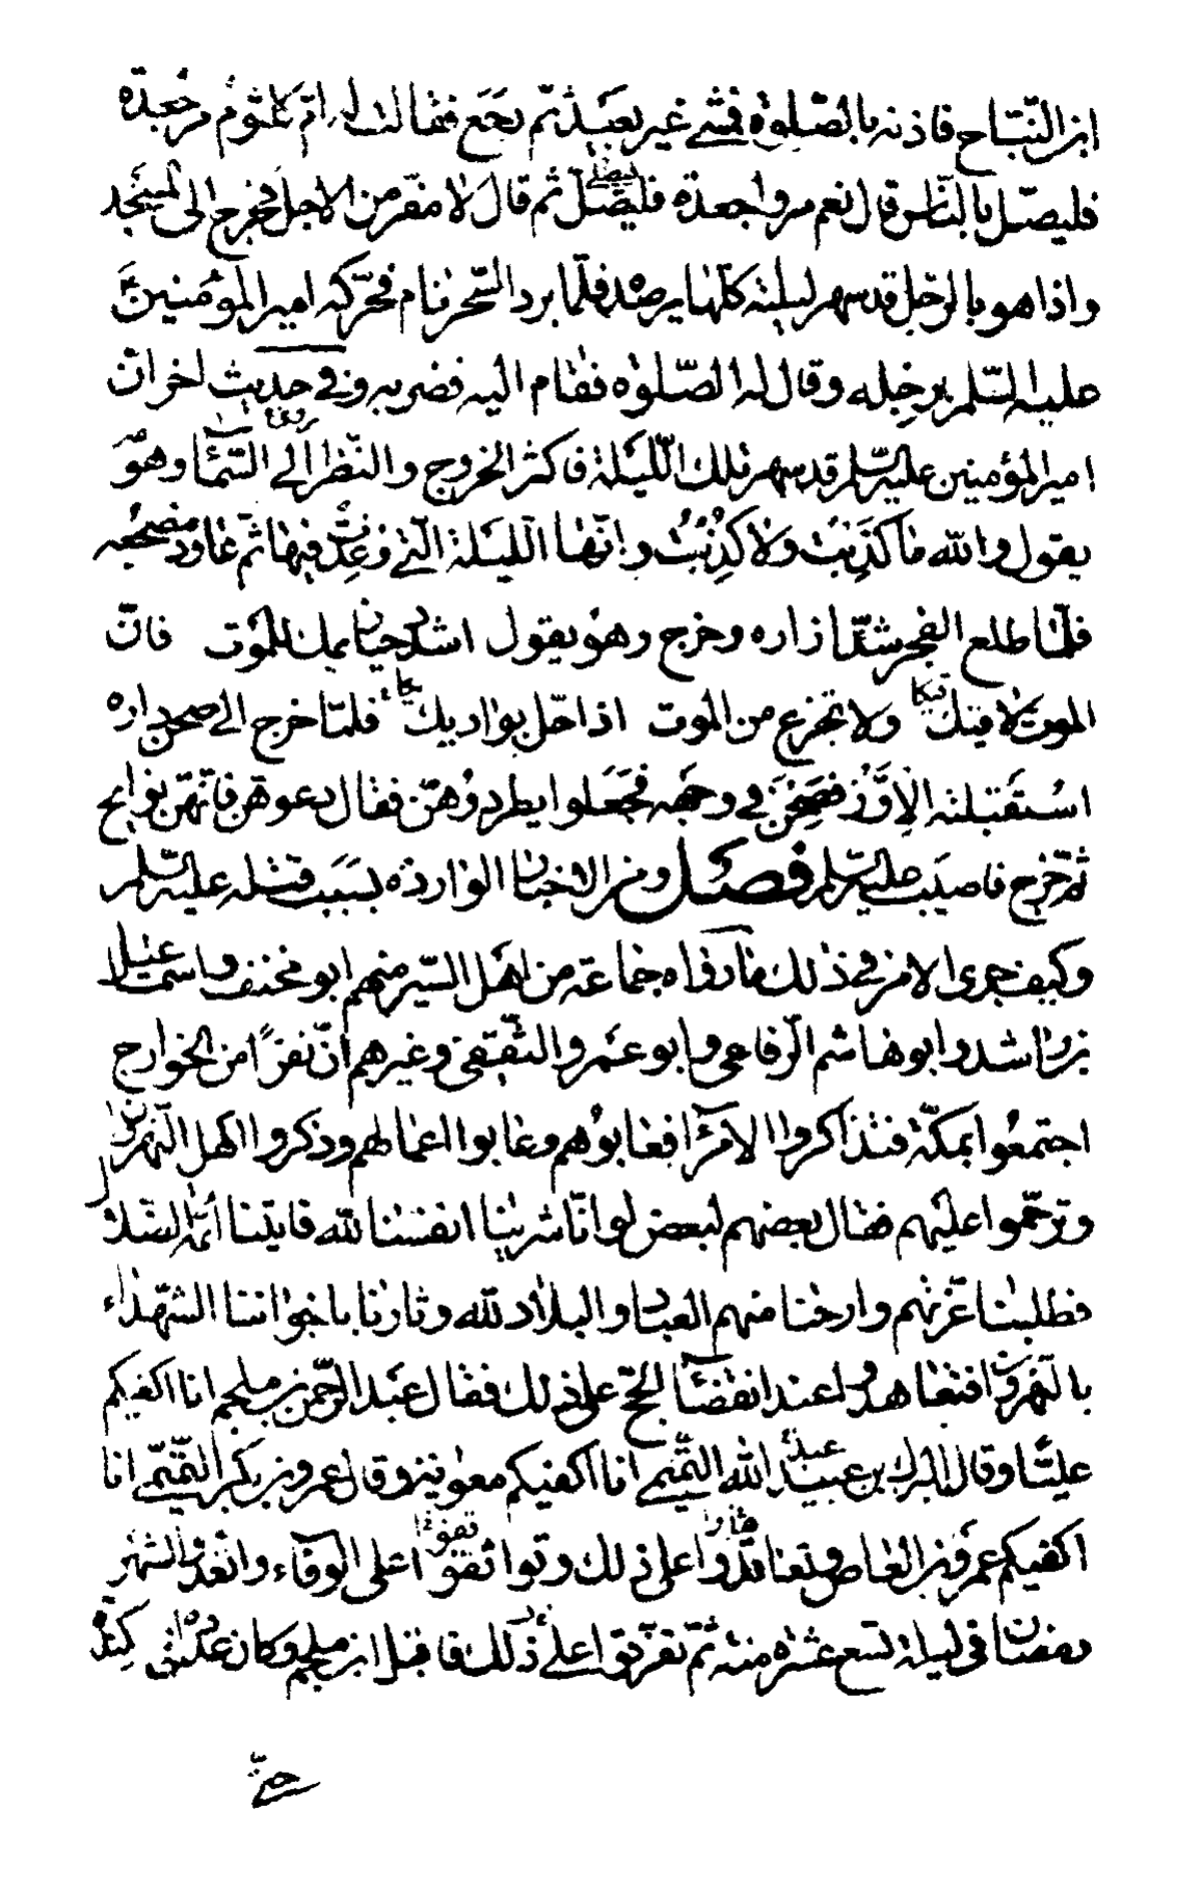 ابن النّبّاح فاذنه بالصّلوة فمشى غير بعَيد ثمّ رجَع فقالت له امّ كلثوُم مر جُعدة
فليصّل بالنّاس قال نعم مروا جعدة فليصّل ليصلّي ثم قال لا مفرّ من الاجل فخرج الى المسَجد
واذا هو بالرّجل قد سهر ليلته كلّها يرصده فلمّا برد السّحر نام فحرّكه امير المؤمنين
عليه السّلم برجله وقال له الصّلوة فقام اليه فضربه وفي حديث اخر انّ
امير المؤمنين عليه السّلم قد سهر تلك اللّيلة فاكثر الخروج والنّظر الى السّمآء وهو
يقول والله ما كَذَبتُ ولا كُذِّبتُ وانّها اللّيلة الّتي وُعِدتُ فيها ثمّ عاود مضجعه
فلمّا طلع الفجر شدّ ازاره وخرج وهو يقول اشدد حيازيمك للموت فانّ
الموت لاقيك لاقيكا ولا تجزع من الموت اذا حلّ بواديك بكا فلمّا خرج الى صحن داره
استَقبلته الإوَزُّ فصِحْنَ في وجهه فجعَلوا يطردُوهنّ فقال دعوهنّ فانّهنّ نوايح
ثمّ خَرج فاصيب عليه السّلم فصـل ومن الاخبار الواردة بسَبب قتله عليه السّلم
وكيف جرى الامر في ذلك ما رواه جماعة من اهل السّير منهم ابو مخنف واسمعيل
بن راشد وابو هاشم الرّفاعي وابو عمرو الثّقفي وغيرهم انّ نفرًا من الخوارج
اجتمعُوا بمكّة فتذاكروا الامرآء فعابوُهم وعابوا اعمالهم وذكروا اهل النّهروان
وترحّموا عليهم فقال بعضهم لبعض لو انّا شرينا انفسنا لله فاتينا ائمّة الضّلال
فطلبنا غرّتهم وارحنا منهم العباد والبلاد لله وثارنا باخواننا الشّهداء
بالنّهروان فتعاهدوا عند انقضآء الحجّ على ذلك فقال عبد الرّحمن بن ملجم انا اكفيكم
عليّا وقال البرك بن عبيد عبد الله التّميمي انا اكفيكم معوية وقال عمرو بن بكر التّميمي انا
اكفيكم عمرو بن العاص وتعاقدوا على ذلك وتواثقوا على الوفاء واتّعدوا لشهر
رمضان في ليلة تسع عشرة منه ثمّ تفرّقوا على ذلك فاقبل ابن ملجم وكان عداده في كندة
حتّى